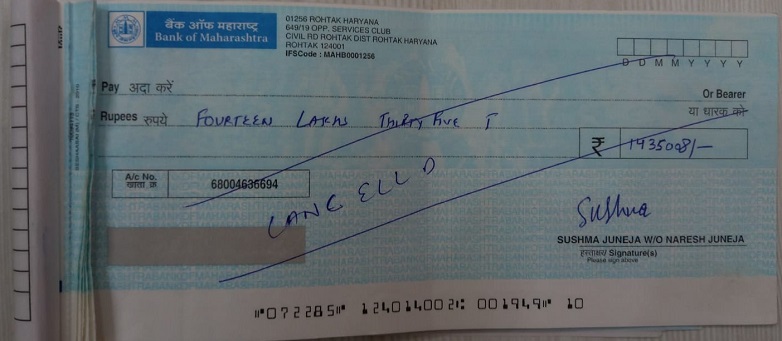 बैंक ऑफ महाराष्ट्र
Bank of Maharashtra
01256 ROHTAK HARYANA
649/19 OPP. SERVICES CLUB
CIVIL RD ROHTAK DIST ROHTAK HARYANA
ROHTAK 124001
IFSCode : MAHB0001256
D D M M Y Y Y Y
Pay अदा करें
Or Bearer
या धारक को
Rupees रुपये FOURTEEN LAKHS THIRTY FIVE T
₹ 1435008/-
A/c No.
खाता क्र
68004636694
CANCELLD
Sushma
SUSHMA JUNEJA W/O NARESH JUNEJA
हस्ताक्षर Signature(s)
Please sign above
⑈072285⑈ 124014002⑆ 001949⑈ 10